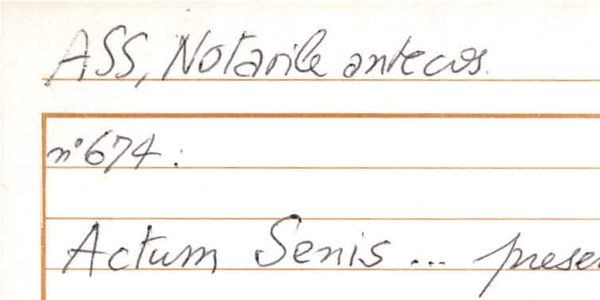 ASS, Notarile antecos.
n° 674:
Actum Senis ... prese